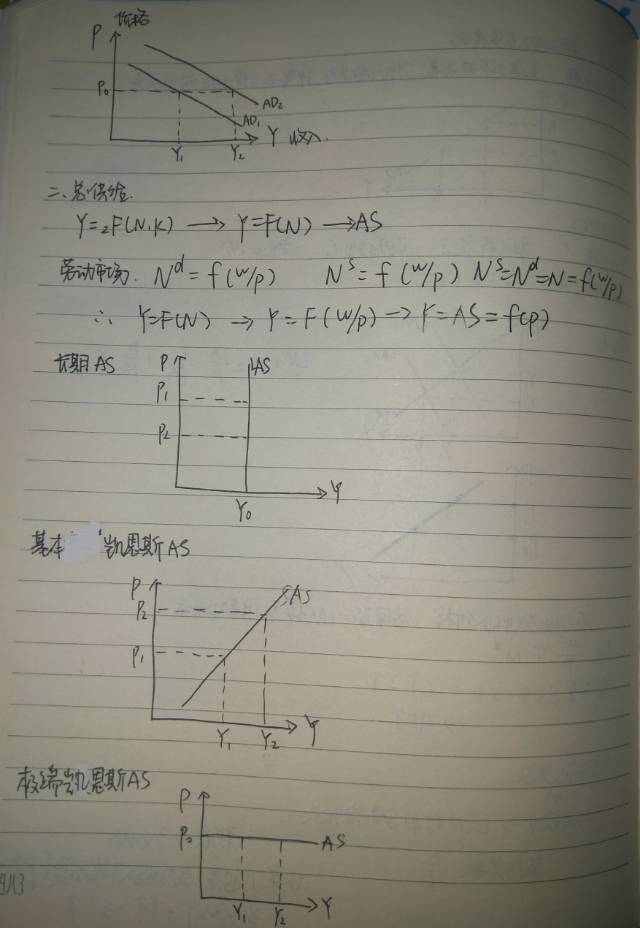 价格
P
P₀
AD₂
AD₁
Y₁ Y₂ Y 收入
二、总供给
Y=₂F(N,K) → Y=F(N) → AS
劳动市场. Nᵈ=f(w/p) Nˢ=f(w/p) Nˢ=Nᵈ=N=f(w/p)
∴ Y=F(N) → Y=F(w/p) → Y=AS=f(p)
长期AS P AS
P₁
P₂
Y₀ Y
基本 凯恩斯AS
P AS
P₂
P₁
Y₁ Y₂ Y
极端凯恩斯AS
P
P₀ AS
Y₁ Y₂ Y